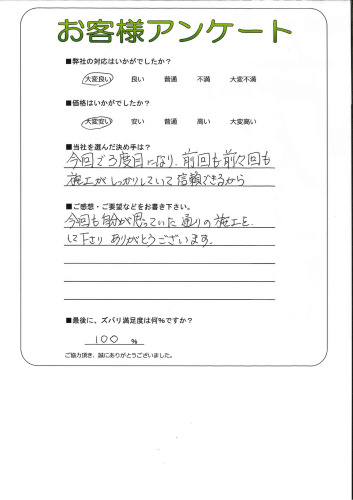 お客様アンケート
■弊社の対応はいかがでしたか？
大変良い 良い 普通 不満 大変不満
■価格はいかがでしたか？
大変安い 安い 普通 高い 大変高い
■当社を選んだ決め手は？
今回で3度目になり、前回も前々回も
施工がしっかりしていて信頼できるから
■ご感想・ご要望などをお書き下さい。
今回も自分が思っていた通りの施工を
して下さりありがとうございます。
■最後に、ズバリ満足度は何%ですか？
100 %
ご協力頂き、誠にありがとうございました。